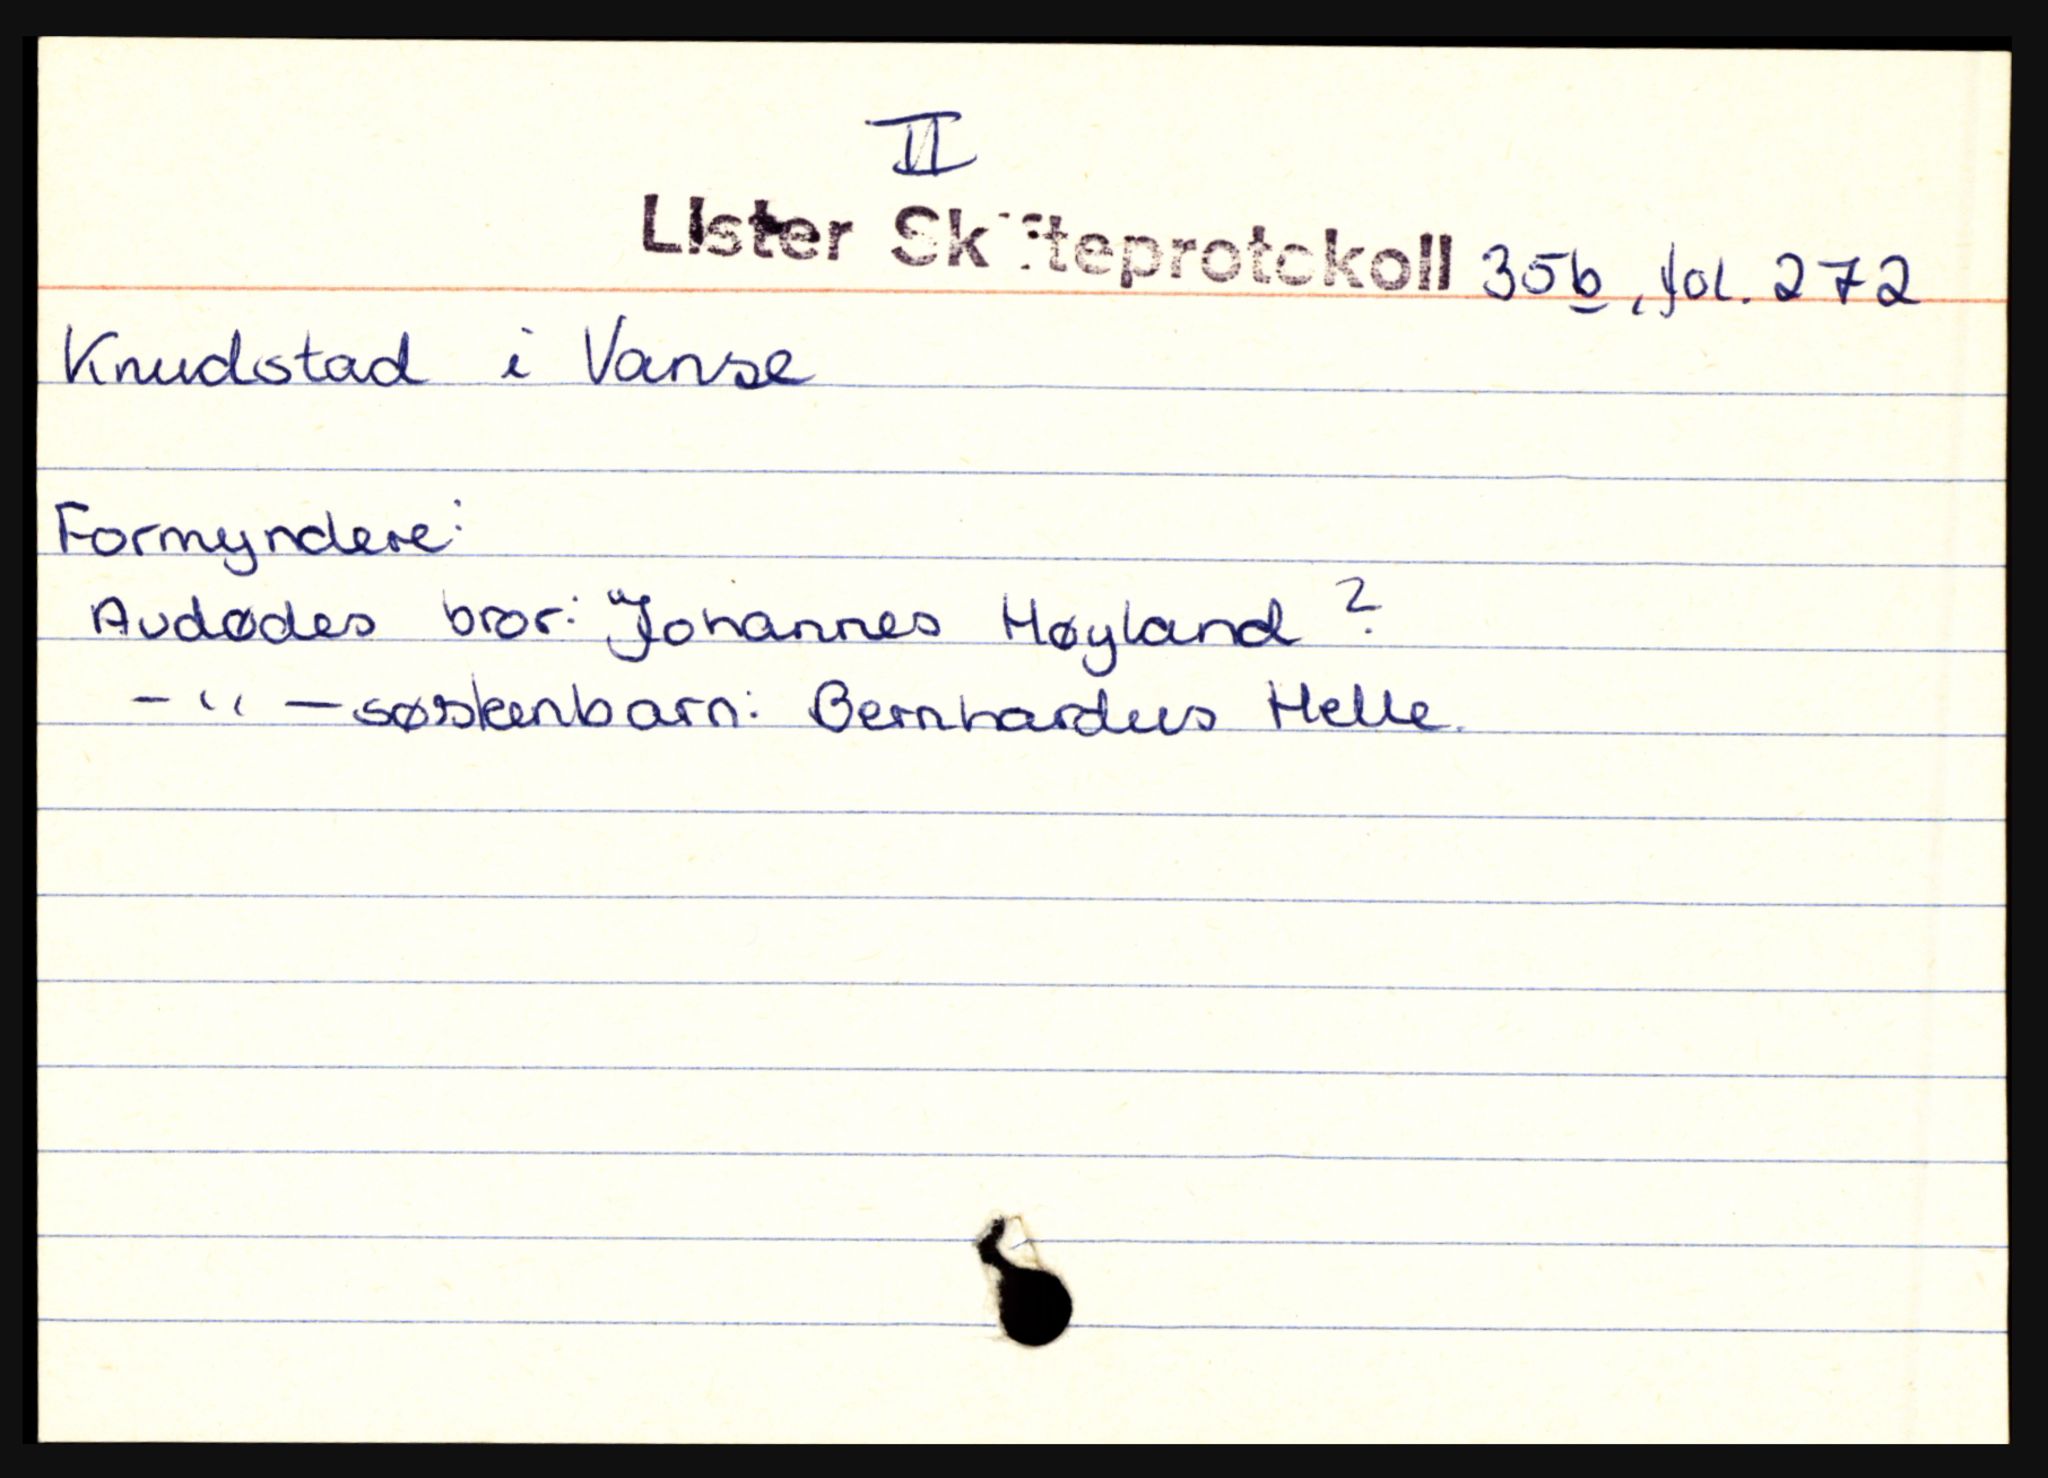 II
Lister Skifteprotokoll 35b, fol. 272
Knudstad i Vanse
Formyndere:
Avdødes bror: Johannes Høyland ?
- " - søskenbarn: Bernhardus Helle.